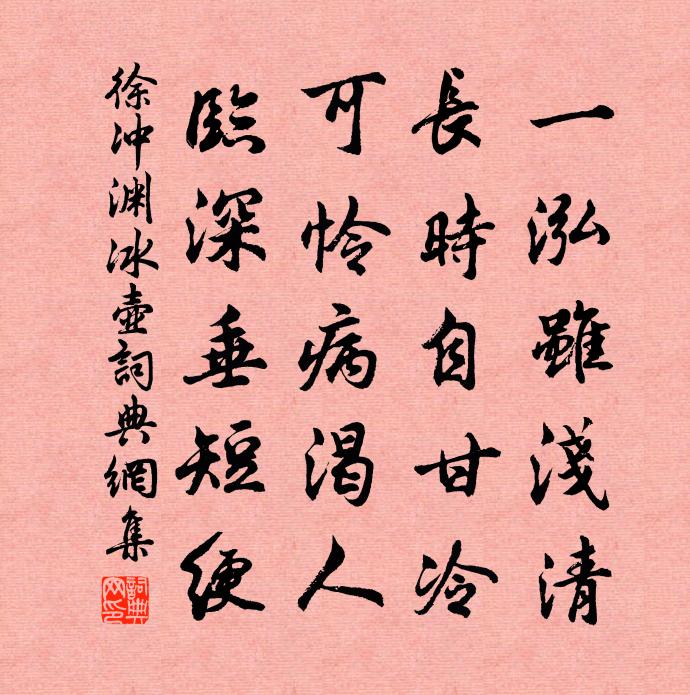 一泓雖淺清
長時自甘冷
可怜病渴人
臨深垂短綆
徐沖淵冰壺詞典網集
詞典網印